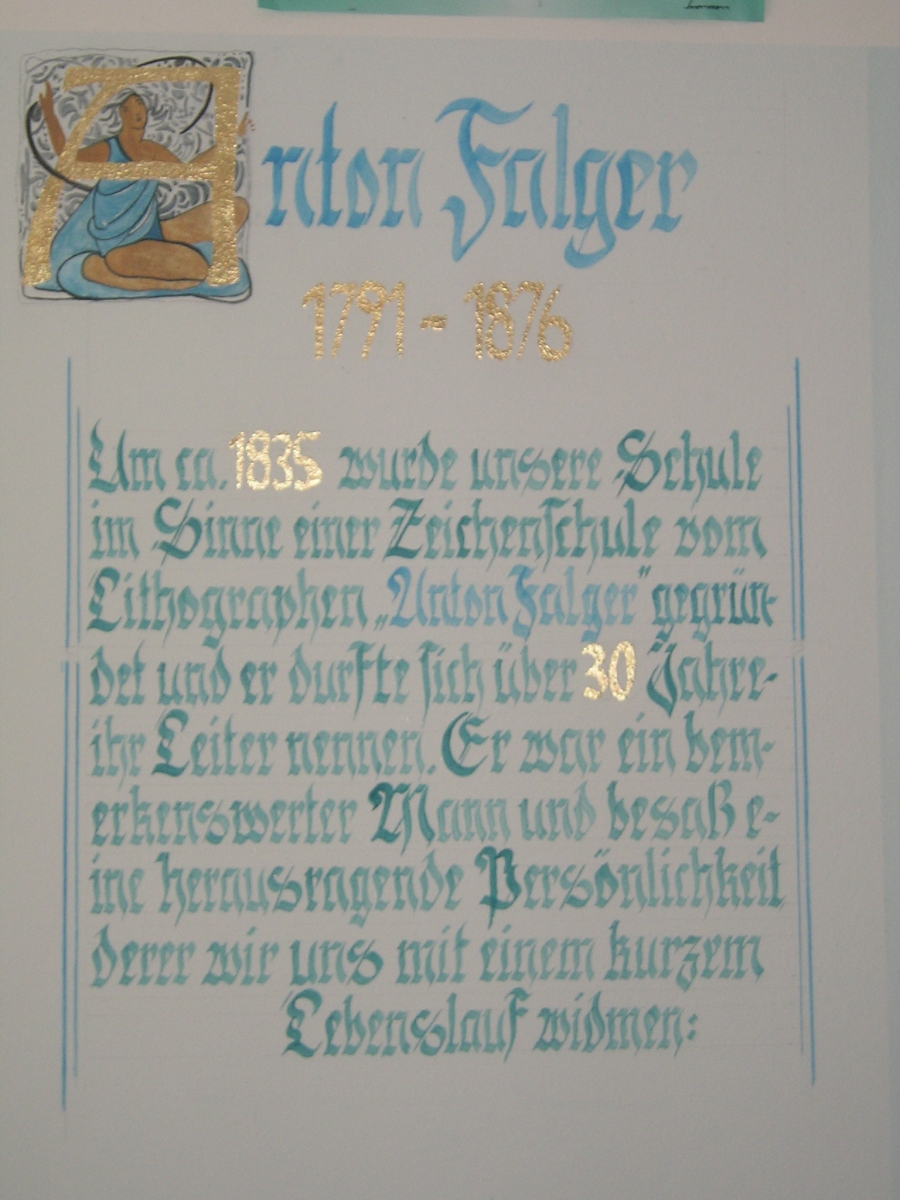 Anton Falger
1791 - 1876
Um ca. 1835 wurde unsere Schule
im Sinne einer Zeichenschule vom
Lithographen „Anton Falger" gegrün-
det und er durfte sich über 30 Jahre-
ihr Leiter nennen. Er war ein bem-
erkenswerter Mann und besaß e-
ine herausragende Persönlichkeit
derer wir uns mit einem kurzem
Lebenslauf widmen: